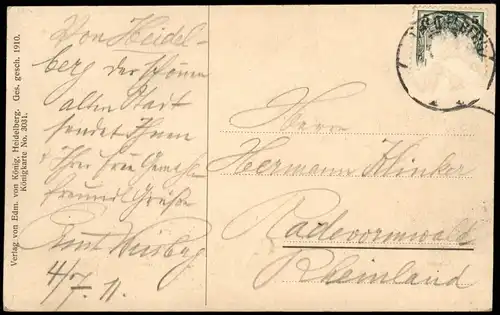 Von Heidel-
berg der schönen
alten Stadt
sendet Ihnen
Ihrer Frau
freundl Grüße
4/7. 11.
Herrn
Hermann Klinker
Radevormwald
Rheinland
Verlag von Edm. von König, Heidelberg. Ges. gesch. 1910.
Königkarte No. 3031.